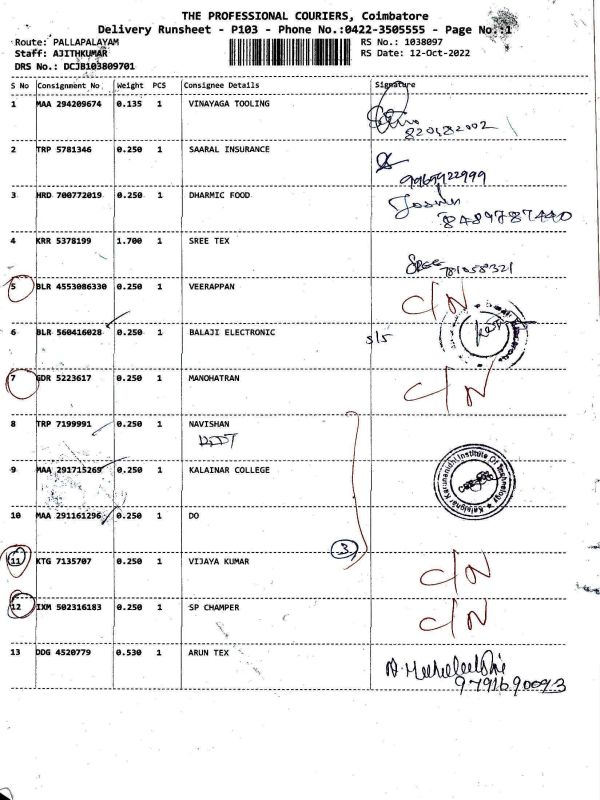 THE PROFESSIONAL COURIERS, Coimbatore
Delivery Runsheet - P103 - Phone No.:0422-3505555 - Page No.:1
Route: PALLAPALAYAM RS No.: 1038097
Staff: AJITHKUMAR RS Date: 12-Oct-2022
DRS No.: DCJB103809701
S No Consignment No Weight PCS Consignee Details Signature
1 MAA 294209674 0.135 1 VINAYAGA TOOLING
2 TRP 5781346 0.250 1 SAARAL INSURANCE
9969922999
3 HRD 700772019 0.250 1 DHARMIC FOOD
8489787440
4 KRR 5378199 1.700 1 SREE TEX
SREE
5 BLR 4553086330 0.250 1 VEERAPPAN C/N
6 BLR 560416028 0.250 1 BALAJI ELECTRONIC S/S
7 GDR 5223617 0.250 1 MANOHATRAN C/N
8 TRP 7199991 0.250 1 NAVISHAN
9 MAA 291715269 0.250 1 KALAINAR COLLEGE
Kalaignar Karunanidhi Institute Of Technology
10 MAA 291161296 0.250 1 DO
3
11 KTG 7135707 0.250 1 VIJAYA KUMAR C/N
12 IXM 502316183 0.250 1 SP CHAMPER C/N
13 DDG 4520779 0.530 1 ARUN TEX
9791690093